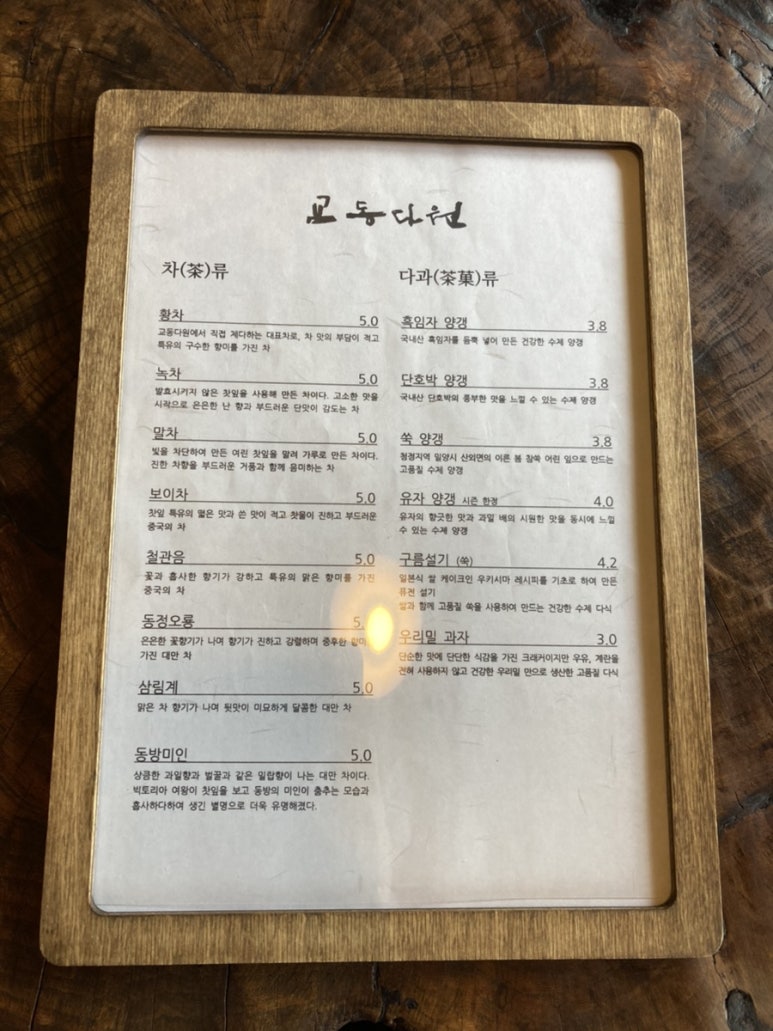 교동다원
차(茶)류
황차 5.0
교동다원에서 직접 제다하는 대표차로, 차 맛의 부담이 적고
특유의 구수한 향미를 가진 차
녹차 5.0
발효시키지 않은 찻잎을 사용해 만든 차이다. 고소한 맛을
시작으로 은은한 난 향과 부드러운 단맛이 감도는 차
말차 5.0
빛을 차단하여 만든 여린 찻잎을 말려 가루로 만든 차이다.
진한 차향을 부드러운 거품과 함께 음미하는 차
보이차 5.0
찻잎 특유의 떫은 맛과 쓴 맛이 적고 찻물이 진하고 부드러운
중국의 차
철관음 5.0
꽃과 흡사한 향기가 강하고 특유의 맑은 향미를 가진
중국의 차
동정오룡 5.
은은한 꽃향기가 나며 향기가 진하고 강렬하며 중후한
가진 대만 차
삼림계 5.0
맑은 차 향기가 나며 뒷맛이 미묘하게 달콤한 대만 차
동방미인 5.0
상큼한 과일향과 벌꿀과 같은 밀랍향이 나는 대만 차이다.
빅토리아 여왕이 찻잎을 보고 동방의 미인이 춤추는 모습과
흡사하다하여 생긴 별명으로 더욱 유명해졌다.
다과(茶菓)류
흑임자 양갱 3.8
국내산 흑임자를 듬뿍 넣어 만든 건강한 수제 양갱
단호박 양갱 3.8
국내산 단호박의 풍부한 맛을 느낄 수 있는 수제 양갱
쑥 양갱 3.8
청정지역 밀양시 산외면의 이른 봄 참쑥 어린 잎으로 만드는
고품질 수제 양갱
유자 양갱 시즌 한정 4.0
유자의 향긋한 맛과 과밀 배의 시원한 맛을 동시에 느낄
수 있는 수제 양갱
구름설기 (쑥) 4.2
일본식 쌀 케이크인 우키시마 레시피를 기초로 하여 만든
퓨전 설기
쌀과 함께 고품질 쑥을 사용하여 만드는 건강한 수제 다식
우리밀 과자 3.0
단순한 맛에 단단한 식감을 가진 크래커이지만 우유, 계란을
전혀 사용하지 않고 건강한 우리밀 만으로 생산한 고품질 다식